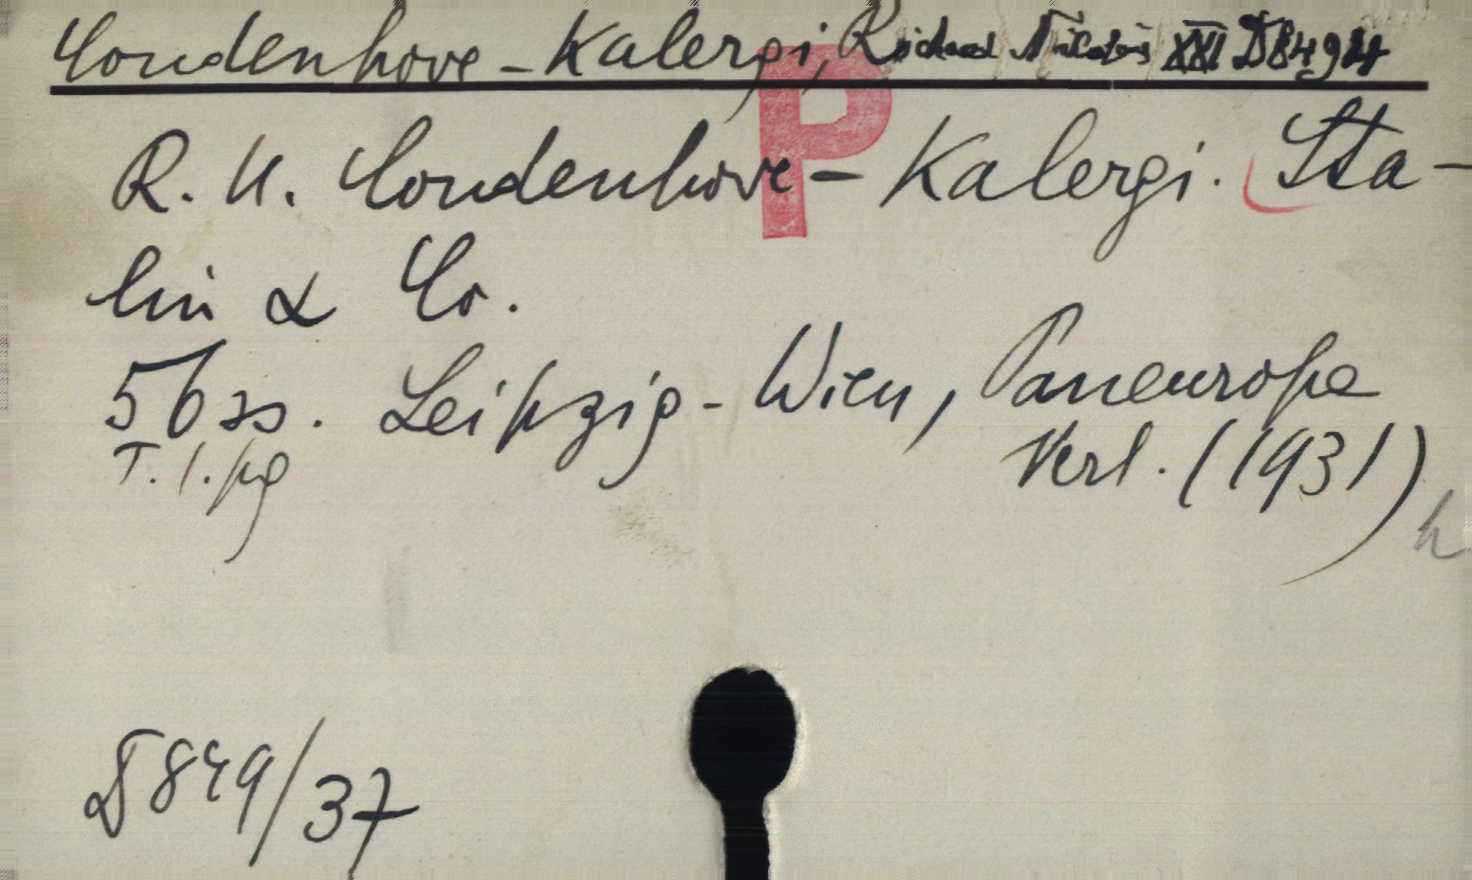 Coudenhove-Kalergi, Richard Nikolaus XXI D 84.984
P
R. N. Coudenhove-Kalergi. Sta-
lin & Co.
56 ss. Leipzig-Wien, Paneuropa
Verl. (1931)
T. l. pg
h
D 849/37